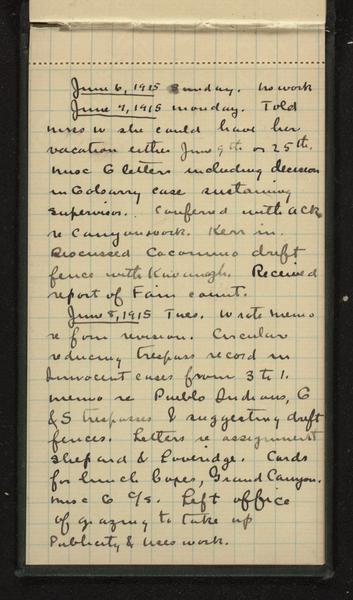 June 6, 1915 Sunday. No work
June 7, 1915 Monday. Told
miss W she could have her
vacation either June 9th or 25th.
Misc G letters including decision
in case sustaining
supervisor. Conferred with ACR
re Canyon work. Kerr in.
Discussed Coconino drift
fence with Kavanagh. Received
report of Fain count.
June 8, 1915 Tues. Wrote memo
re form revision. Circular
reducing trespass record in
Innocent cases from 3 to 1.
memo re Pueblo Indians, G
& S trespasses & suggesting drift
fences. Letters re assignment
Shepard & Loveridge. Cards
for lunch Copes, Grand Canyon.
Misc G C/s. Left office
of grazing to take up
Publicity & uses work.